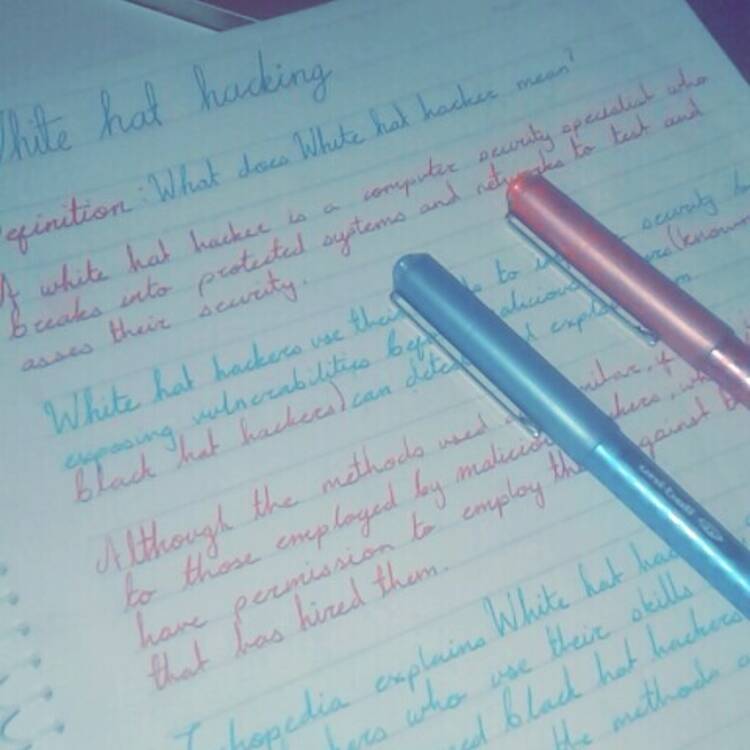 White hat hacking
Definition: What does White hat hacker mean?
A white hat hacker is a computer security specialist who
breaks into protected systems and networks to test and
asses their security.
White hat hackers use their to security
exposing vulnerabilities before malicious (known
black hat hackers) can detect and exploit
Although the methods used similar, if
to those employed by malicious hackers,
have permission to employ them against
that has hired them.
Techopedia explains White hat
who use their skills
black hat hackers
the methods
uni-ball